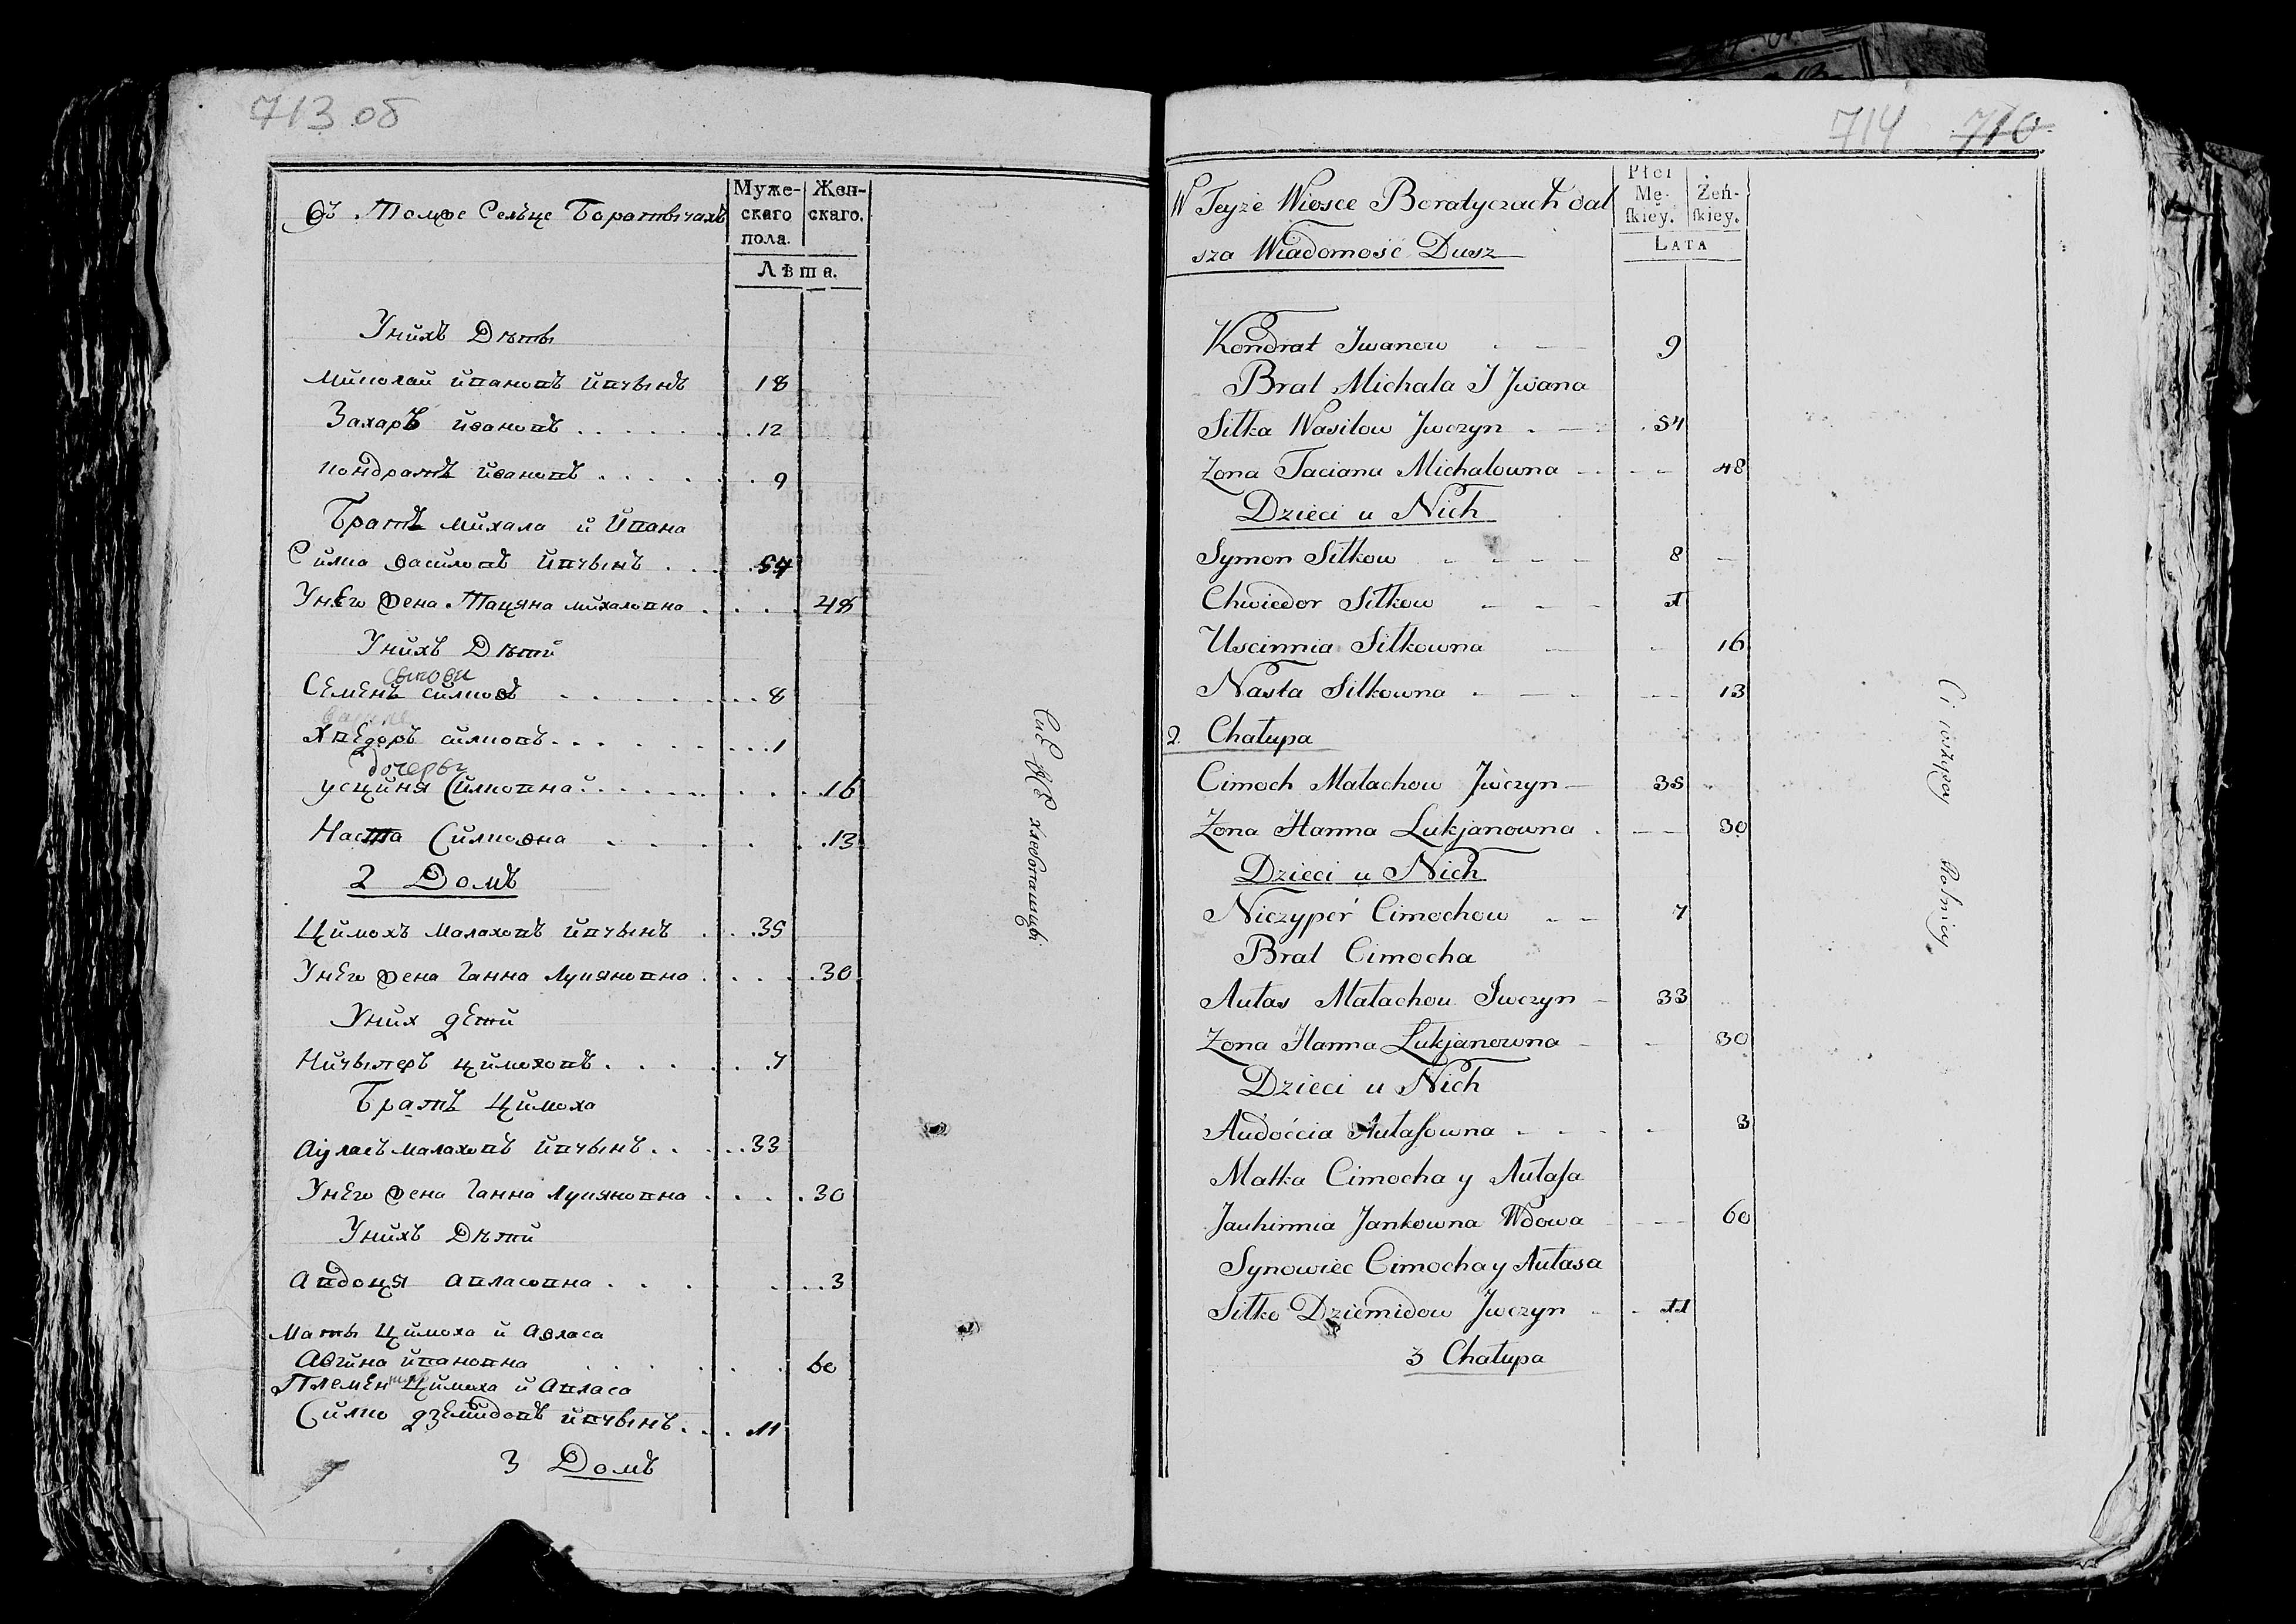 713 об
Въ Томже Селѣце Боратычахъ
Муже-
скаго
пола.
Жен-
скаго.
Лѣта.
Унихъ Дѣты
Миколай Ивановъ Ивчынъ 18
Захаръ Ивановъ . . . . . 12
Кондратъ Ивановъ . . . . . 9
Братъ Михала и Ивана
Силко Василовъ Ивчынъ . . . 54
Унего жена Тацяна Михаловна . . . . 48
Унихъ Дѣти
сыновя
Семенъ Силковъ . . . . . . . . 8
Хведоръ Силковъ . . . . . . . . 1
дочеры
Усциня Силковна . . . . . . . . 16
Наста Силковна . . . . . . 13
2 Домъ
Цимохъ Малаховъ Ивчынъ . . . 35
Унего жена Ганна Лукяновна . . . . 30
Уних дети
Ничыперъ Цимоховъ . . . . . . 7
Братъ Цимоха
Ауласъ Малаховъ Ивчынъ . . . . 33
Унего жена Ганна Лукяновна . . . . 30
Унихъ Дѣти
Авдоця Авласовна . . . . . . 3
Маты Цимоха и Авласа
Авгиня Ивановна . . . . . . 60
Племен Цимоха и Авласа
Силко Дземидовъ Ивчынъ . . . 11
3 Домъ
Сие же хлебопашцы
714 710
W Teyże Wiosce Boratyczach dal
sza Wiadomość Dusz
Płci
Mę-
skiey.
Żeń-
skiey.
LATA
Kondrat Jwanow 9
Brat Michala J Jwana
Siłka Wasilow Jwczyn 54
Żona Taciana Michalowna 48
Dzieci u Nich
Symon Siłkow 8
Chwiedor Siłkow 1
Uscinnia Siłkowna 16
Nasta Siłkowna 13
2. Chałupa
Cimoch Małachow Jwczyn 35
Żona Hanna Łukjanowna 30
Dzieci u Nich
Niczyper Cimochow 7
Brat Cimocha
Aułas Małachou Jwczyn 33
Żona Hanna Łukjanowna 30
Dzieci u Nich
Audoćcia Aułasowna 3
Matka Cimocha y Aułasa
Jauhinnia Jankowna Wdowa 60
Synowiec Cimocha y Aułasa
Siłko Dziemidow Jwczyn 11
3 Chałupa
Ci wszyscy Rolnicy